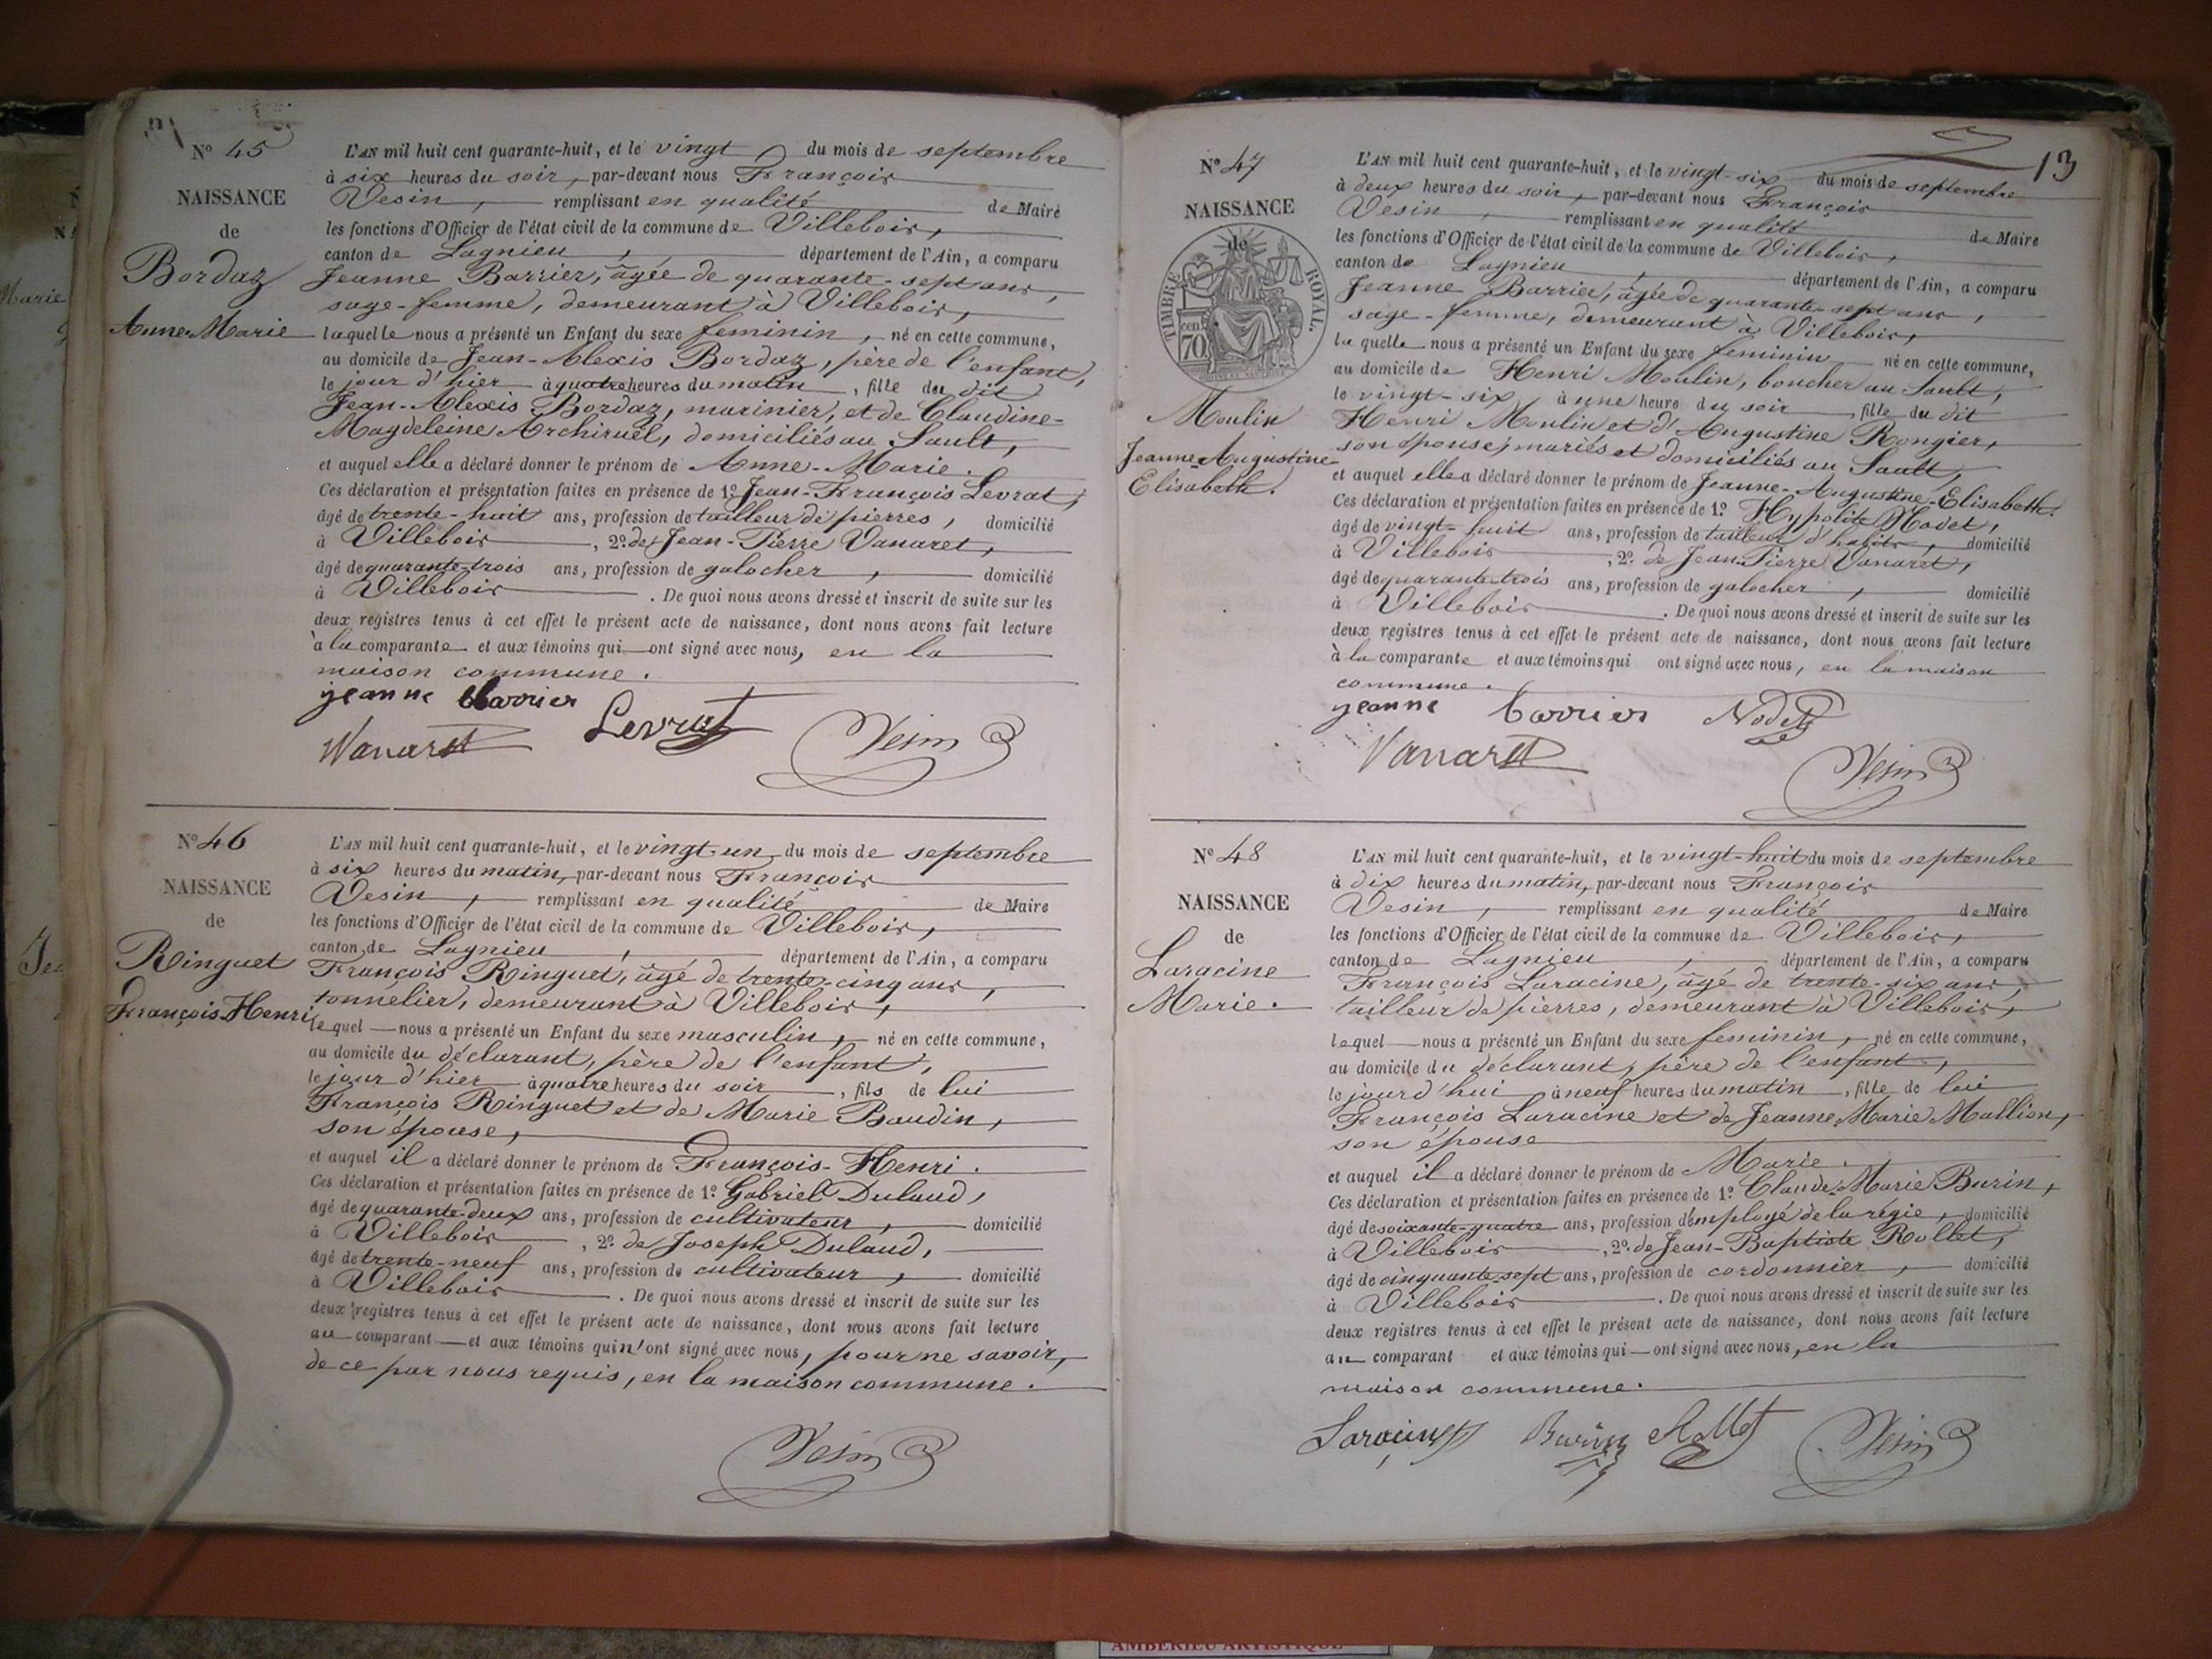 Nº 45
NAISSANCE
de
Bordaz
Anne-Marie
L'AN mil huit cent quarante-huit, et le vingt du mois de septembre
à six heures du soir, par-devant nous François
Vesin, remplissant en qualité de Maire
les fonctions d'Officier de l'état civil de la commune de Villebois,
canton de Lagnieu, département de l'Ain, a comparu
Jeanne Barrier, âgée de quarante-sept ans,
sage-femme, demeurant à Villebois,
laquelle nous a présenté un Enfant du sexe feminin, né en cette commune,
au domicile de Jean-Alexis Bordaz, père de l'enfant,
le jour d'hier à quatre heures du matin, fille du dit
Jean-Alexis Bordaz, marinier, et de Claudine-
Magdeleine Archiruel, domiciliés au Sault,
et auquel elle a déclaré donner le prénom de Anne-Marie.
Ces déclaration et présentation faites en présence de 1º Jean-François Levrat,
âgé de trente-huit ans, profession de tailleur de pierres, domicilié
à Villebois, 2º de Jean-Pierre Vanaret,
âgé de quarante-trois ans, profession de galocher, domicilié
à Villebois. De quoi nous avons dressé et inscrit de suite sur les
deux registres tenus à cet effet le présent acte de naissance, dont nous avons fait lecture
à la comparante et aux témoins qui ont signé avec nous, en la
maison commune.
jeanne barrier
Levrat
Vanaret
Vesin
Nº 46
NAISSANCE
de
Ringuet
François-Henri
L'AN mil huit cent quarante-huit, et le vingt-un du mois de septembre
à six heures du matin, par-devant nous François
Vesin, remplissant en qualité de Maire
les fonctions d'Officier de l'état civil de la commune de Villebois,
canton de Lagnieu, département de l'Ain, a comparu
François Ringuet, âgé de trente-cinq ans,
tonnelier, demeurant à Villebois,
lequel nous a présenté un Enfant du sexe masculin, né en cette commune,
au domicile du déclarant, père de l'enfant,
le jour d'hier à quatre heures du soir, fils de lui
François Ringuet et de Marie Baudin,
son épouse,
et auquel il a déclaré donner le prénom de François-Henri.
Ces déclaration et présentation faites en présence de 1º Gabriel Dulaud,
âgé de quarante-deux ans, profession de cultivateur, domicilié
à Villebois, 2º de Joseph Dulaud,
âgé de trente-neuf ans, profession de cultivateur, domicilié
à Villebois. De quoi nous avons dressé et inscrit de suite sur les
deux registres tenus à cet effet le présent acte de naissance, dont nous avons fait lecture
au comparant et aux témoins qui n'ont signé avec nous, pour ne savoir,
de ce par nous requis, en la maison commune.
Vesin
13
Nº 47
NAISSANCE
de
TIMBRE ROYAL.
cen
70
Moulin
Jeanne-Augustine
Elisabeth.
L'AN mil huit cent quarante-huit, et le vingt-six du mois de septembre
à deux heures du soir, par-devant nous François
Vesin, remplissant en qualité de Maire
les fonctions d'Officier de l'état civil de la commune de Villebois,
canton de Lagnieu, département de l'Ain, a comparu
Jeanne Barrier, âgée de quarante-sept ans,
sage-femme, demeurant à Villebois,
laquelle nous a présenté un Enfant du sexe feminin né en cette commune,
au domicile de Henri Moulin, boucher au Sault,
le vingt-six, à une heure du soir, fille du dit
Henri Moulin et d'Augustine Rongier,
son épouse, mariés et domiciliés au Sault,
et auquel elle a déclaré donner le prénom de Jeanne-Augustine-Elisabeth.
Ces déclaration et présentation faites en présence de 1º Hypolite Nodet,
âgé de vingt-huit ans, profession de tailleur d'habits, domicilié
à Villebois, 2º de Jean-Pierre Vanaret,
âgé de quarante-trois ans, profession de galocher, domicilié
à Villebois. De quoi nous avons dressé et inscrit de suite sur les
deux registres tenus à cet effet le présent acte de naissance, dont nous avons fait lecture
à la comparante et aux témoins qui ont signé avec nous, en la maison
commune.
jeanne barrier Nodet
Vanaret
Vesin
Nº 48
NAISSANCE
de
Laracine
Marie.
L'AN mil huit cent quarante-huit, et le vingt-huit du mois de septembre
à dix heures du matin, par-devant nous François
Vesin, remplissant en qualité de Maire
les fonctions d'Officier de l'état civil de la commune de Villebois,
canton de Lagnieu, département de l'Ain, a comparu
François Laracine, âgé de trente-six ans,
tailleur de pierres, demeurant à Villebois,
lequel nous a présenté un Enfant du sexe feminin, né en cette commune,
au domicile du déclarant, père de l'enfant,
le jourd'hui à neuf heures du matin, fille de lui
François Laracine et de Jeanne Marie Mallion,
son épouse
et auquel il a déclaré donner le prénom de Marie.
Ces déclaration et présentation faites en présence de 1º Claude-Marie Burin,
âgé de soixante-quatre ans, profession d'employé de la régie, domicilié
à Villebois, 2º de Jean-Baptiste Rollet,
âgé de cinquante-sept ans, profession de cordonnier, domicilié
à Villebois. De quoi nous avons dressé et inscrit de suite sur les
deux registres tenus à cet effet le présent acte de naissance, dont nous avons fait lecture
au comparant et aux témoins qui ont signé avec nous, en la
maison commune.
Laracine Burin Rollet Vesin
AMBERIEU ARTISTIQUE